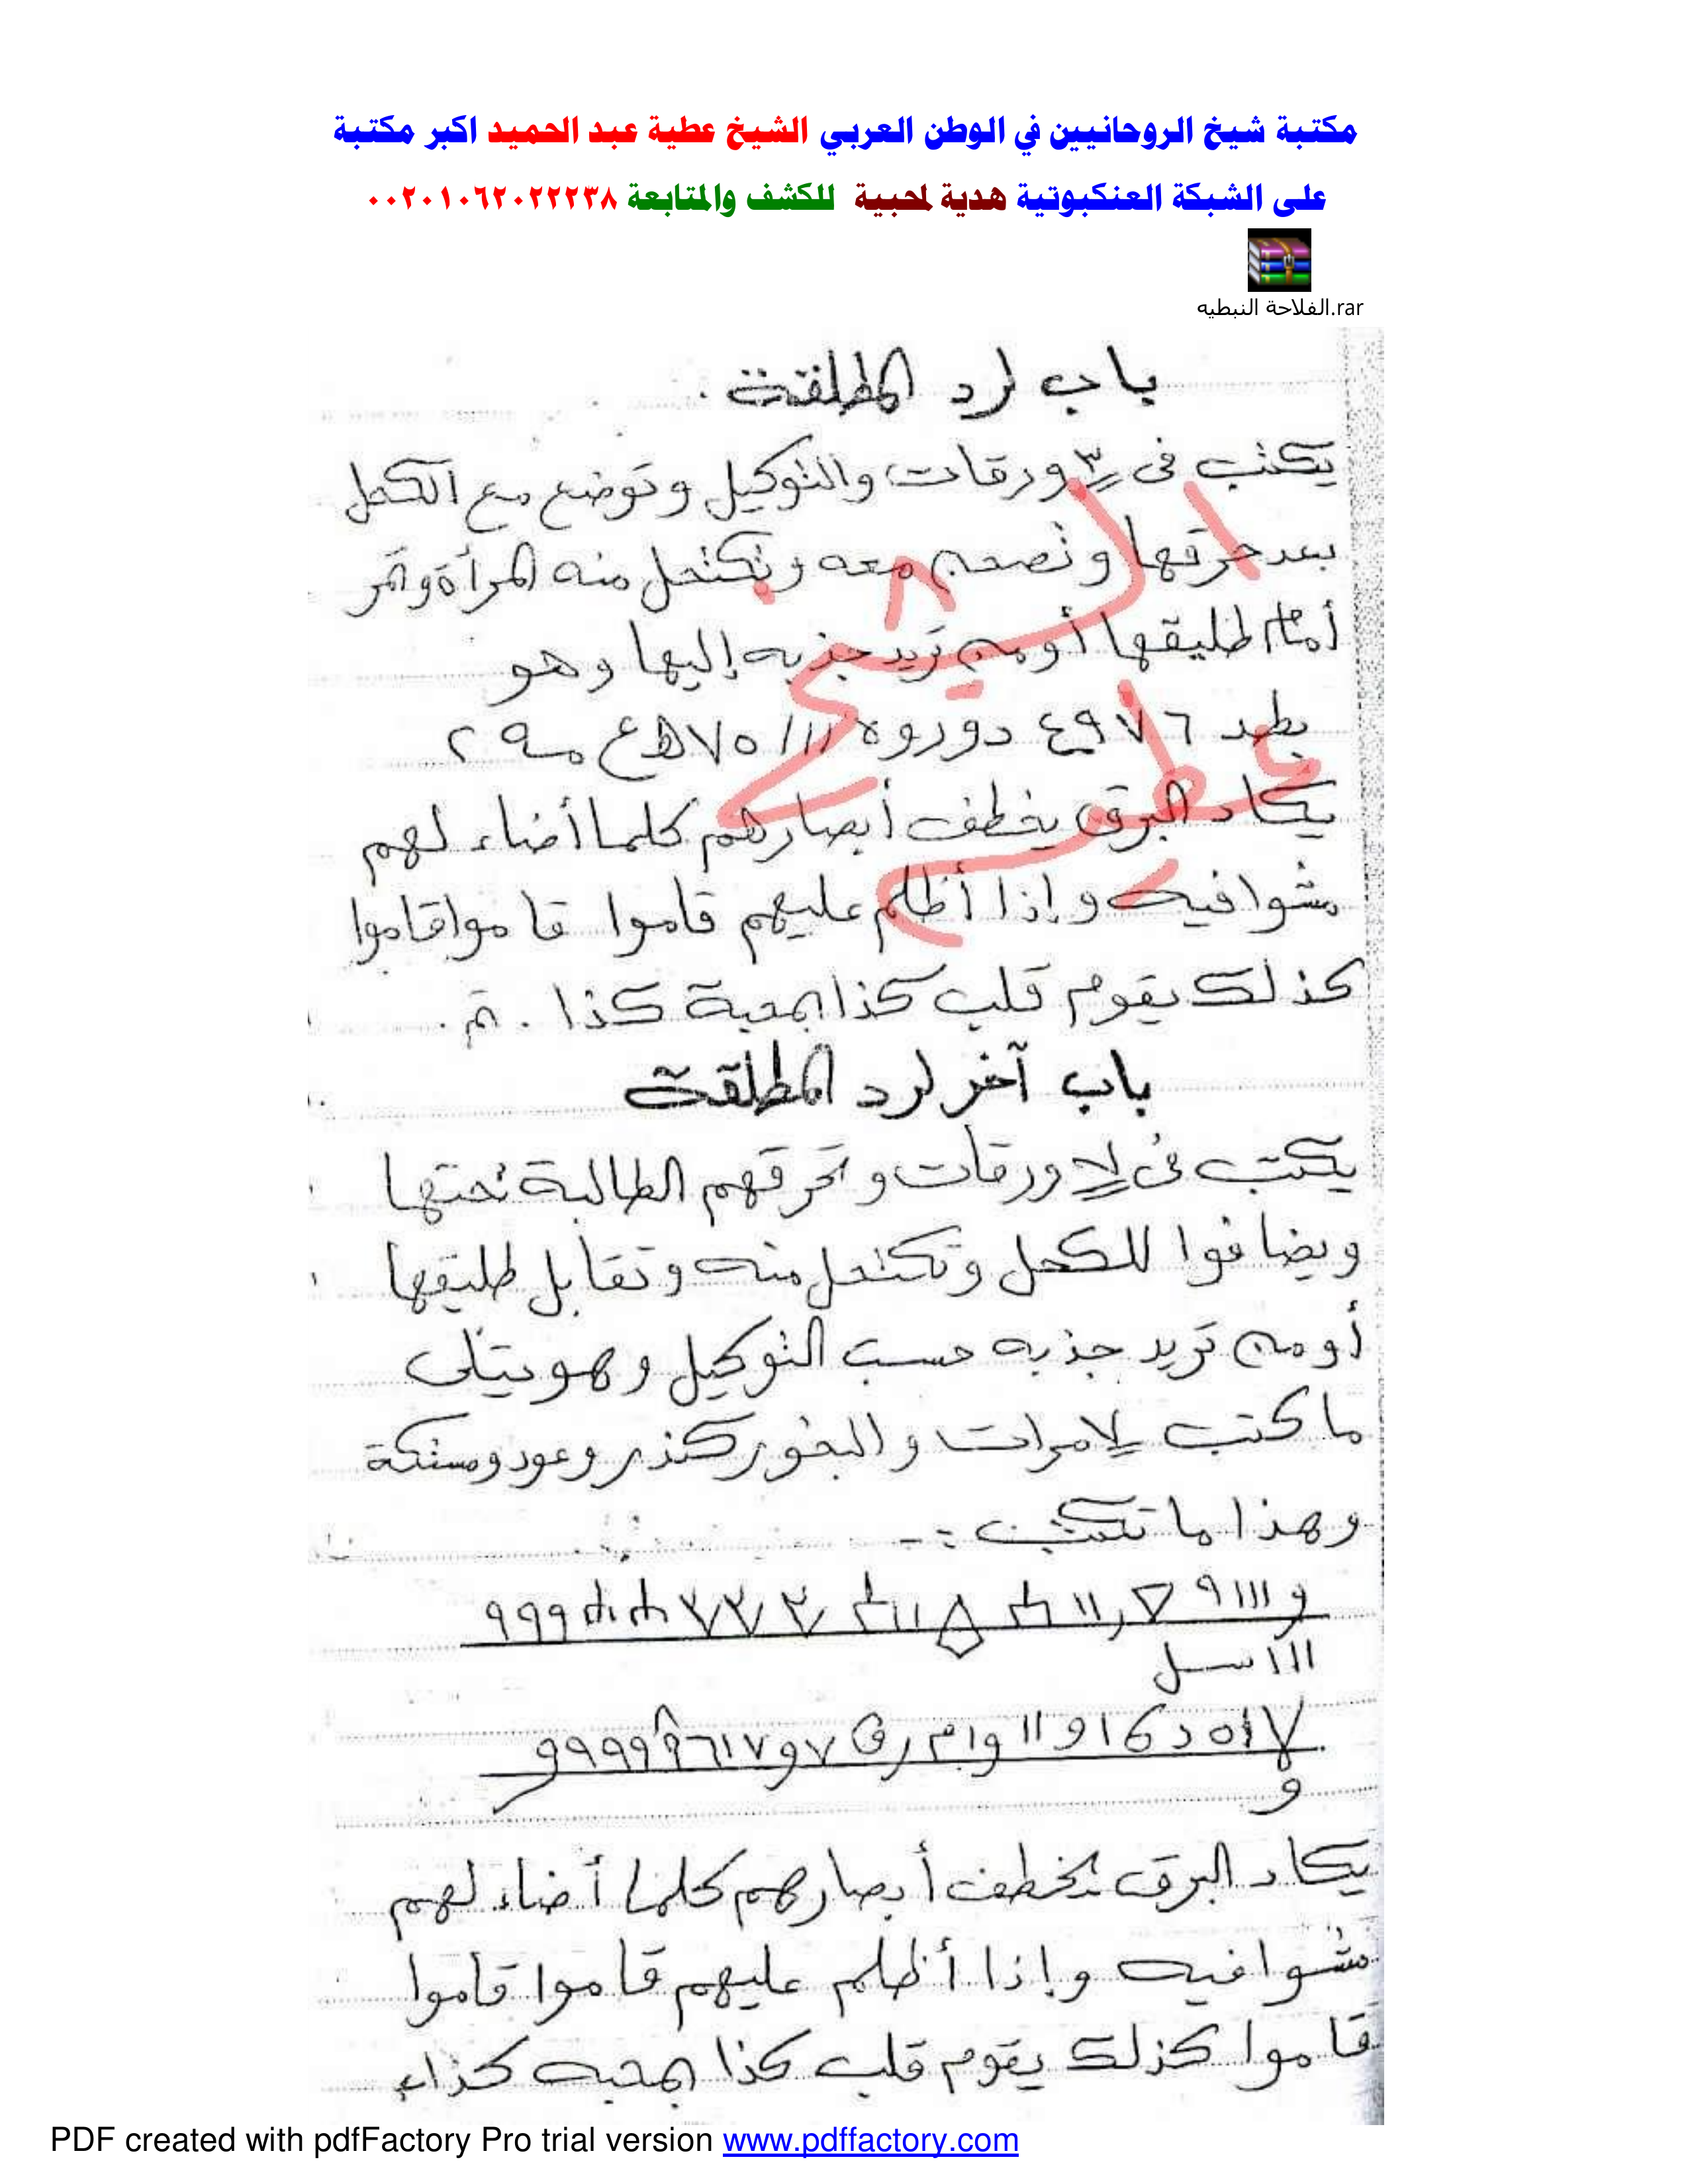 مكتبة شيخ الروحانيين في الوطن العربي الشيخ عطية عبد الحميد اكبر مكتبة
على الشبكة العنكبوتية هدية لمحبية للكشف والمتابعة ٠٠٢٠١٠٦٢٠٢٢٢٣٨
الفلاحة النبطيه.rar
باب لرد المطلقة .
يكتب فى ٣ ورقات والتوكيل وتوضع مع الكحل
بعد حرقها وتصحن معه وتكتحل منه المرأة وتمر
أمام طليقها أو من تريد جذبه إليها وهو
بطهد ٤٩٧٦
يكاد البرق يخطف أبصارهم كلما أضاء لهم
مشوا فيه وإذا أظلم عليهم قاموا قاموا قاموا
كذلك يقوم قلب كذا بمحبة كذا . تم .
باب آخر لرد المطلقة
يكتب فى ورقات وتحرقهم الطالبة تحتها
ويضافوا للكحل وتكتحل منه وتقابل طليقها
أو من تريد جذبه حسب التوكيل وهو يتلى
ما كتب مرات والبخور كندر وعود ومستكة
وهذا ما تكتب :-
يكاد البرق يخطف أبصارهم كلما أضاء لهم
مشوا فيه وإذا أظلم عليهم قاموا قاموا
قاموا كزلك يقوم قلب كذا بمحبه كذاء
الشيخ
عطيه
PDF created with pdfFactory Pro trial version www.pdffactory.com